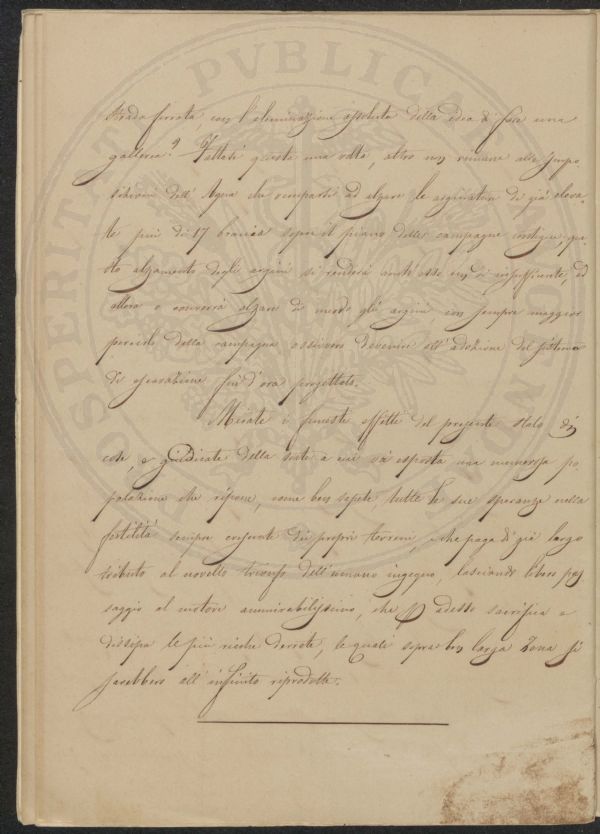 PVBLICA
PROSPERITAT
strada ferrata con l'eliminazione assoluta della idea di fare una
galleria? Fattati questa una volta, altro non rimane alle Impo-
sizioni dell'Agna che rimpartir ad alzare le arginature di già eleva-
te più di 17 braccia sopra il piano delle campagne contigue, que-
sto alzamento degli argini si renderà anch'esso insufficiente, ed
allora o converrà alzare di nuovo gli argini con sempre maggior
pericolo della campagna ossivvero devenire all'adozione del sistema
di escavazione fin d'ora progettato.
Mirate i funesti effetti del presente stato di
cose, e giudicate della sorte a cui va esposta una numerosa po-
polazione che ripone, come ben sapete tutte le sue speranze nella
fertilità sempre crescente dei propri terreni, e che paga di già largo
tributo al novello trionfo dell'umano ingegno, lasciando libero pas
saggio al motore ammirabilissimo, che adesso sacrifica e
dissipa le più ricche derrate, le quali sopra ben larga Zona si
sarebbero all'infinito riprodotte.